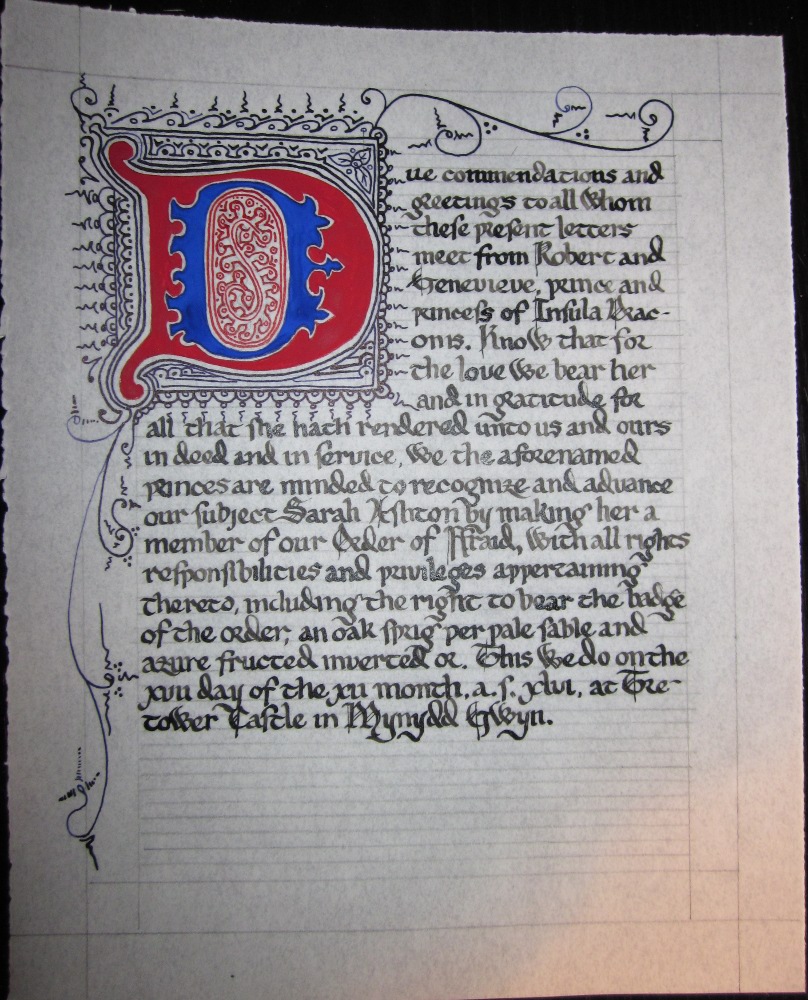 Due commendations and
greetings to all whom
these present letters
meet from Robert and
Genevieve, prince and
princess of Insula Drac-
onis. Know that for
the love we bear her
and in gratitude for
all that she hath rendered unto us and ours
in deed and in service, we the aforenamed
princes are minded to recognize and advance
our subject Sarah Ashton by making her a
member of our Order of Ffraid, with all rights
responsibilities and privileges appertaining
thereto, including the right to bear the badge
of the order; an oak sprig per pale sable and
azure fructed inverted or. This we do on the
xvii day of the xii month, a.s. xlvi, at Tre-
tower Castle in Mynydd Gwyn.